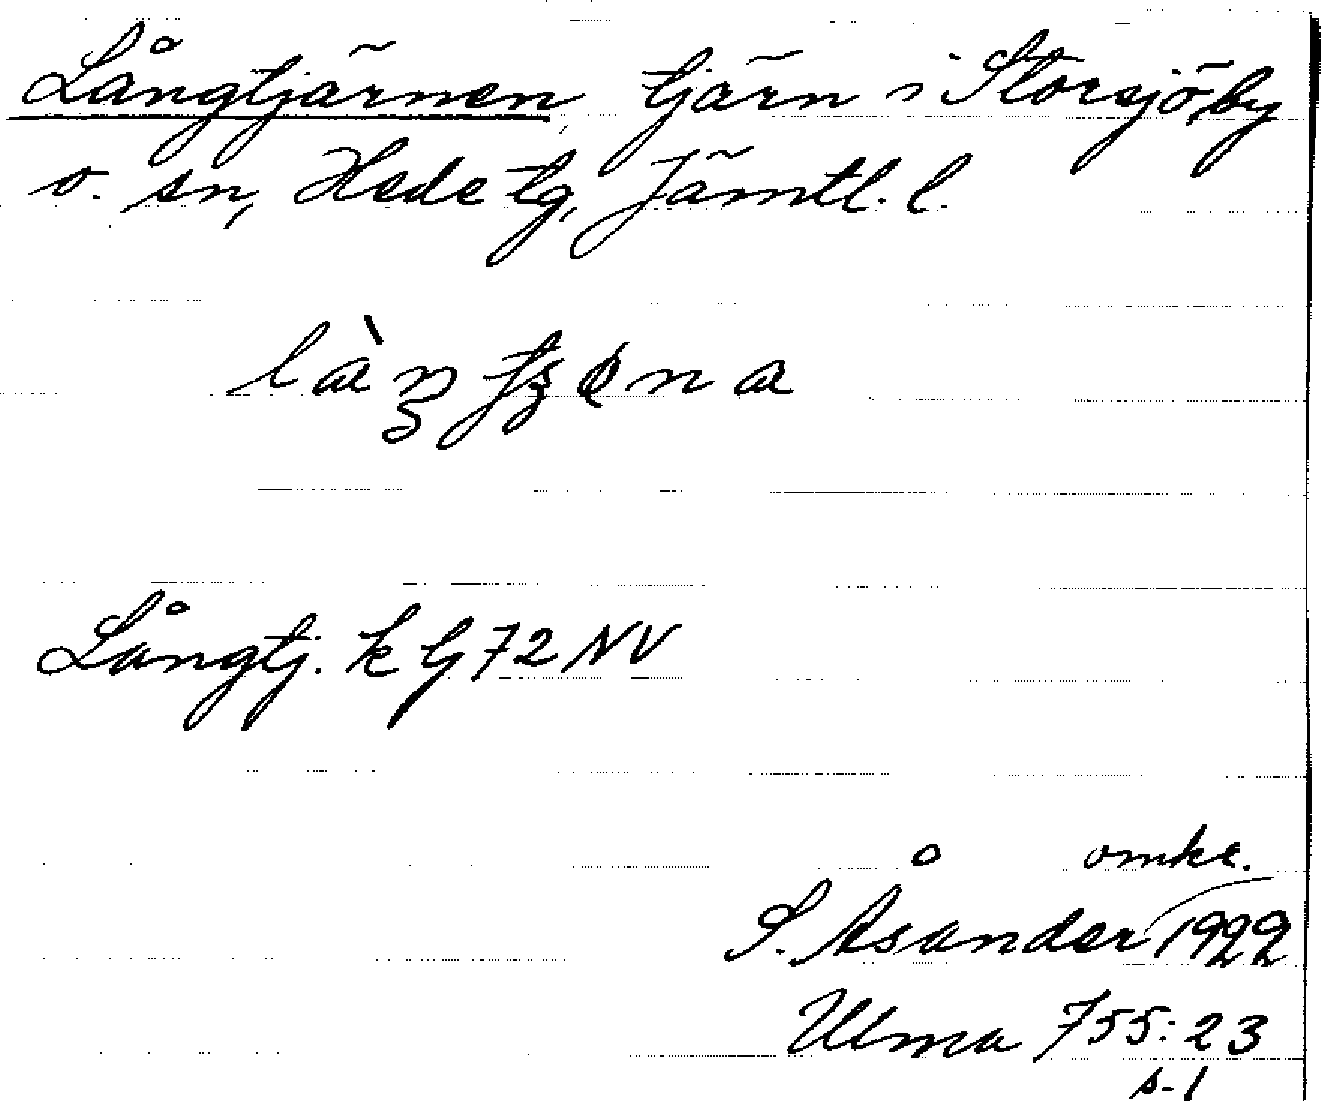 Långtjärnen, tjärn i Storsjö by
o. sn, Hede tg, Jämtl. l.
Långtj. k G 72 NV
omkr.
S. Åsander 1922
Ulma 755:23
s. 1